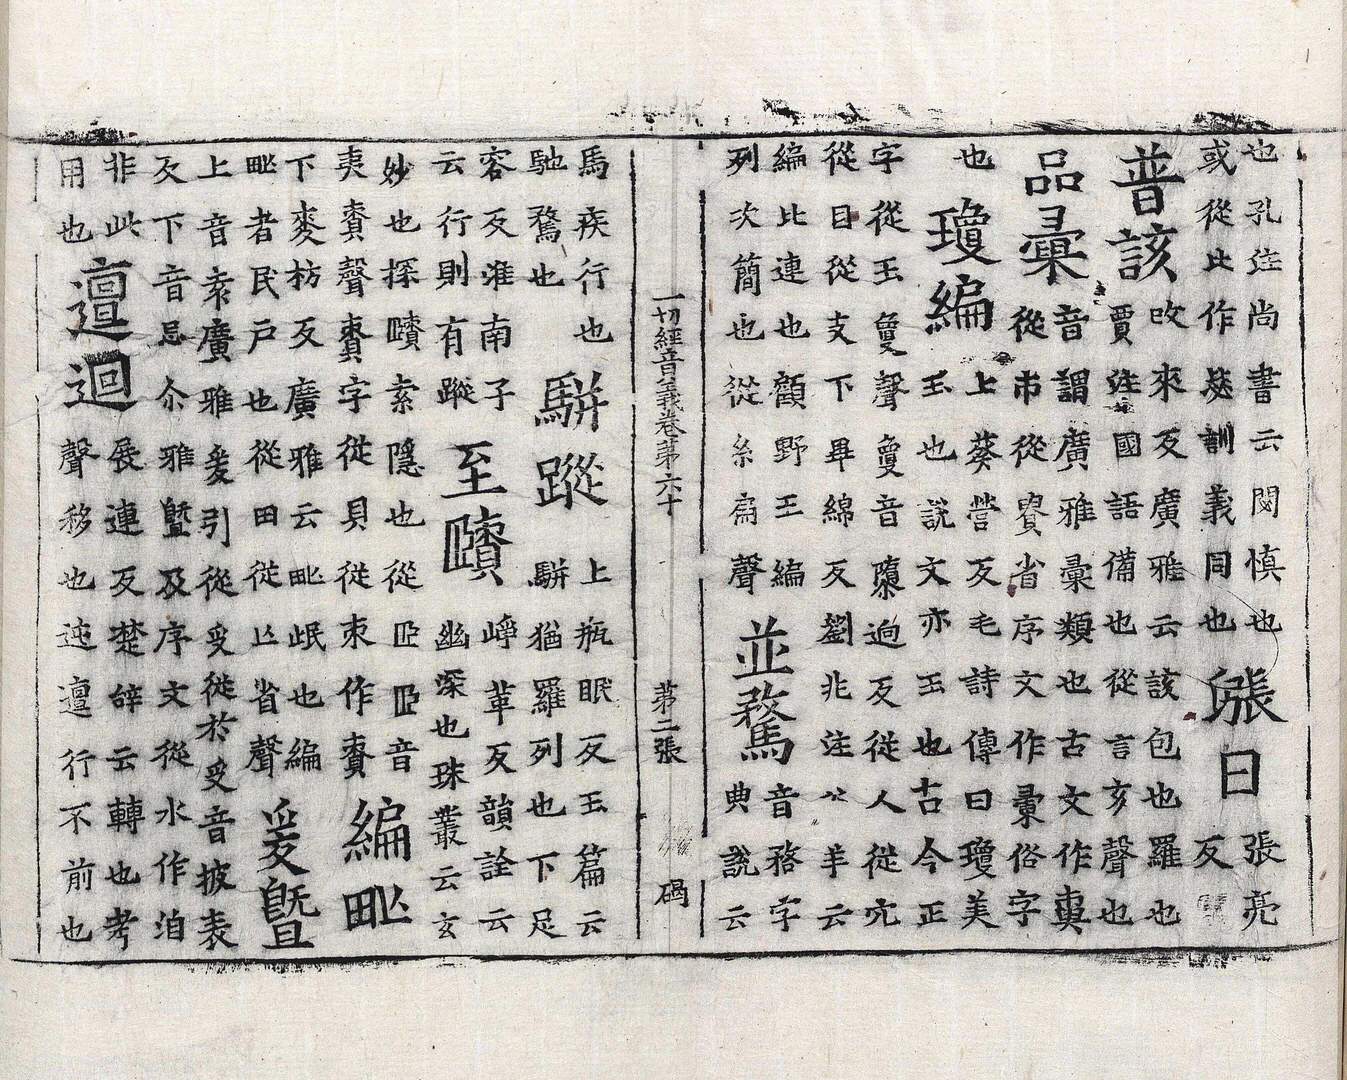 也孔注尚書云閔慎也
或從比作毖訓義同也
日
張亮
反
普該
改來反廣雅云該包也羅也
賈注國語備也從言亥聲也
品彙
音謂廣雅彙類也古文作
從巿從省序文作彚俗字
也
瓊編
上葵營反毛詩傳曰瓊美
玉也說文亦玉也古今正
字從玉敻聲敻音隳逈反從人從穴
從目從攴下畢綿反劉兆注公羊云
編比連也顧野王編
列次簡也從糸扁聲
並騖
音務字
典說云
一切經音義卷第六十　第二張　碣
馬疾行也
馳騖也
駢蹤
上瓶眠反玉篇云
駢猶羅列也下足
容反淮南子
云行則有蹤
至賾
崢革反韻詮云
幽深也珠叢云玄
妙也探賾索隱也從𦣞𦣞音
夷責聲責字從貝從朿作責
編甿
下麥枋反廣雅云甿氓也編
甿者民戶也從田從亾省聲
爰曁
上音袁廣雅爰引從𠬪從於𠬪音披表
反下音忌尒雅曁及序文從水作洎
非此
用也
邅迴
展連反楚辞云轉也考
聲移也迍邅行不前也